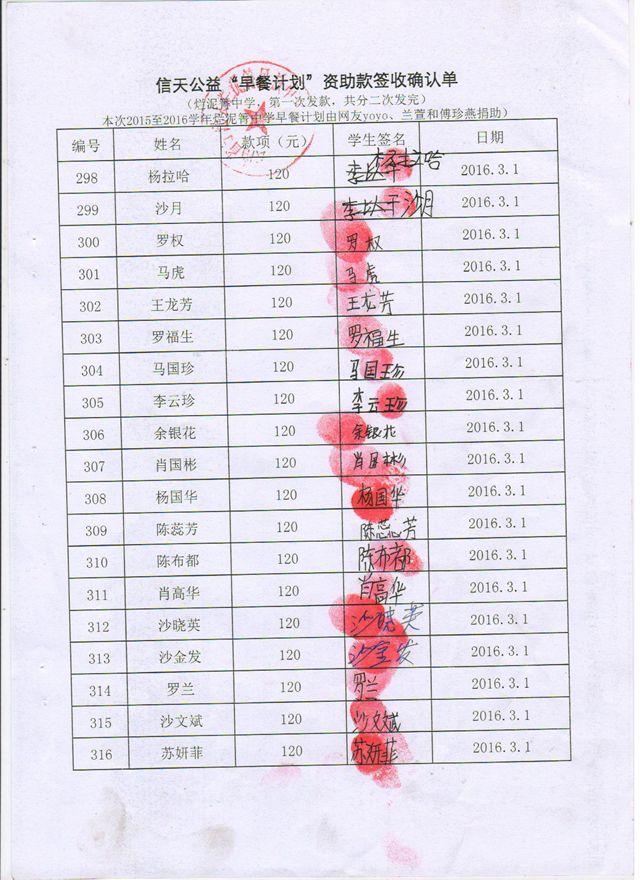 信天公益“早餐计划”资助款签收确认单
（烂泥箐中学，第一次发款，共分二次发完）
本次2015至2016学年烂泥箐中学早餐计划由网友yoyo、兰萱和傅珍燕捐助）
编号 姓名 款项（元） 学生签名 日期
298 杨拉哈 120 2016.3.1
299 沙月 120 沙月 2016.3.1
300 罗权 120 罗权 2016.3.1
301 马虎 120 马虎 2016.3.1
302 王龙芳 120 王龙芳 2016.3.1
303 罗福生 120 罗福生 2016.3.1
304 马国珍 120 马国珍 2016.3.1
305 李云珍 120 李云珍 2016.3.1
306 余银花 120 余银花 2016.3.1
307 肖国彬 120 肖国彬 2016.3.1
308 杨国华 120 杨国华 2016.3.1
309 陈蕊芳 120 陈蕊芳 2016.3.1
310 陈布都 120 陈布都 2016.3.1
311 肖高华 120 肖高华 2016.3.1
312 沙晓英 120 沙晓英 2016.3.1
313 沙金发 120 沙金发 2016.3.1
314 罗兰 120 罗兰 2016.3.1
315 沙文斌 120 沙文斌 2016.3.1
316 苏妍菲 120 苏妍菲 2016.3.1